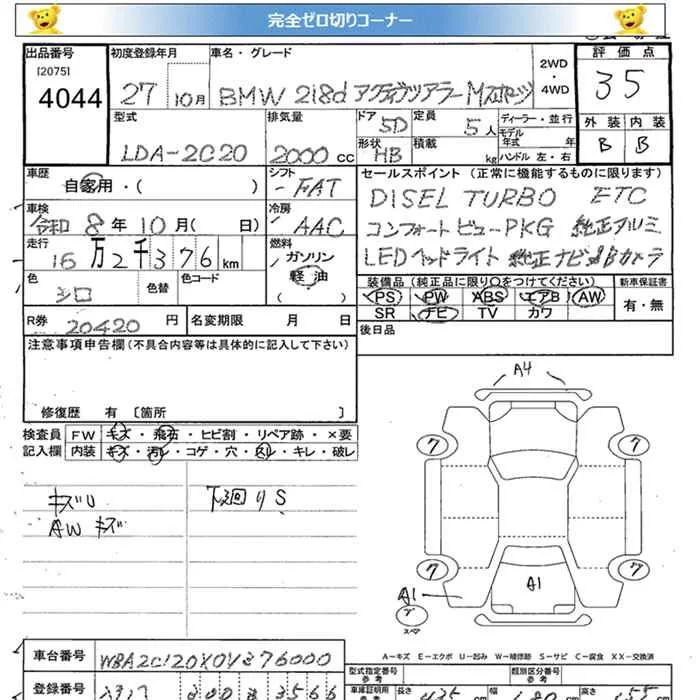 完全ゼロ切りコーナー
出品番号 初度登録年月 車名・グレード 2WD・4WD 評価点
[2075]
4044 27 10月 BMW 218d アクティブツアラー Mスポーツ 35
型式 排気量 ドア 5D 定員 5人 ディーラー・並行 外装 内装
LDA-2C20 2000cc 形状 HB 積載 kg モデル年式 年 ハンドル 左・右 B B
車歴 自家用・( ) シフト -FAT セールスポイント (正常に機能するものに限ります)
DISEL TURBO ETC
車検 令和8年10月( 日) 冷房 AAC コンフォートビューPKG 純正アルミ
走行 16万2千376km 燃料 ガソリン 軽・油 ( ) LEDヘッドライト 純正ナビ Bカメラ
色 シロ 色替 色コード 装備品 (純正品に限り○をつけてください) 新車保証書
PS PW ABS エアB AW 有・無
SR ナビ TV カワ
R券 20420円 名変期限 月 日 後日品
注意事項申告欄(不具合内容等は具体的に記入して下さい)
修復歴 有 [箇所 ]
検査員 FW キズ・飛石・ヒビ割・リペア跡・×要
記入欄 内装 キズ・汚レ・コゲ・穴・スレ・キレ・破レ
キズU 下廻りS
AWキズ
A4
7 7
7 7
A1
A1
スペア
A-キズ E-エクボ U-凹み W-補修跡 S-サビ C-腐食 XX-交換済
車台番号 WBA2C120X0V376000
型式指定番号 類別区分番号
登録番号 車庫証明用 長さ 435 cm 幅 180 cm 高さ 155 cm
参考 参考 参考